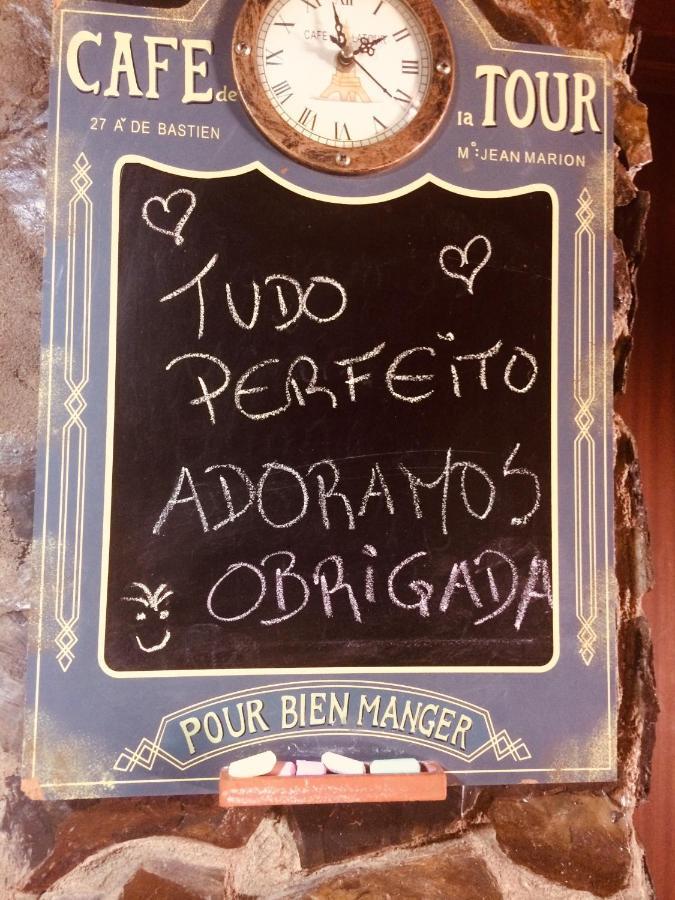 CAFE de la TOUR
27 Aᵛ DE BASTIEN
Mº: JEAN MARION
TUDO
PERFEITO
ADORAMOS
OBRIGADA
POUR BIEN MANGER